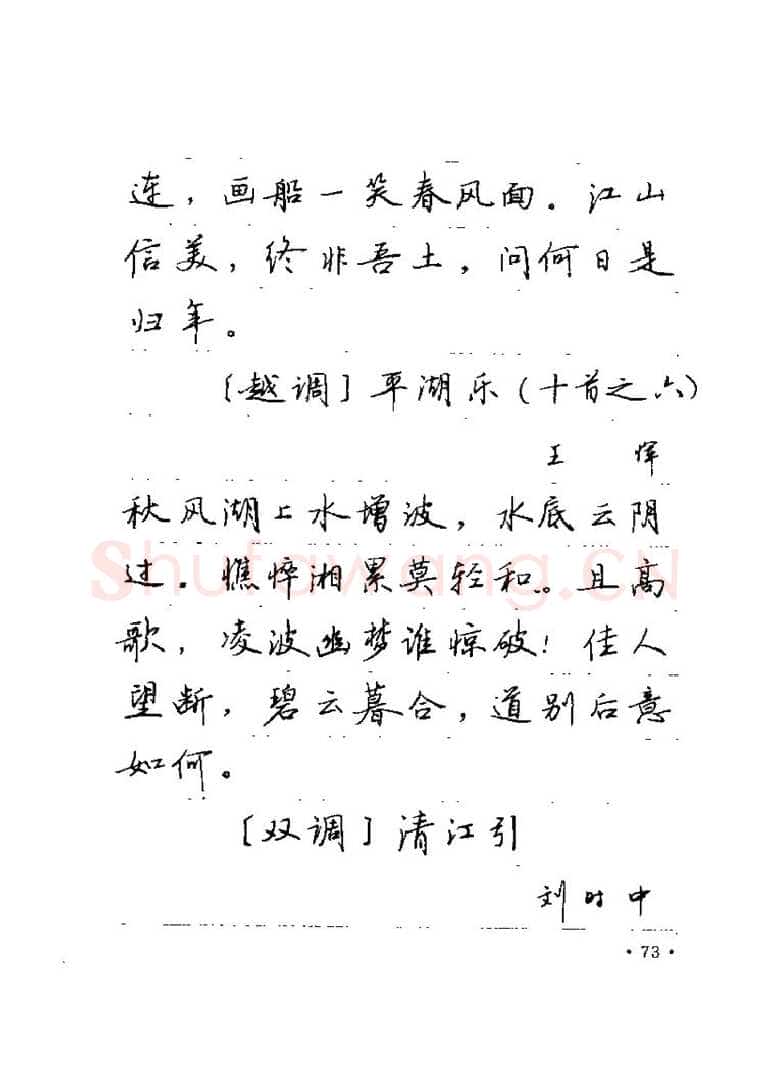 连，画船一笑春风面。江山
信美，终非吾土，问何日是
归年。
［越调］平湖乐（十首之六）
王 恽
秋风湖上水增波，水底云阴
过。憔悴湘累莫轻和。且高
歌，凌波幽梦谁惊破！佳人
望断，碧云暮合，道别后意
如何。
［双调］清江引
刘时中
·73·
Shufawang.CN